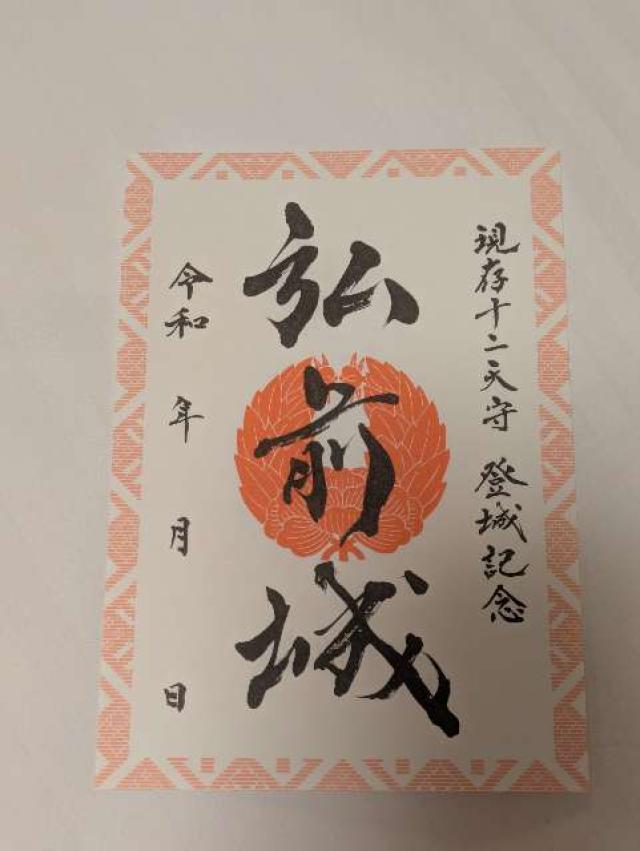 現存十二天守 登城記念
弘前城
令和 年 月 日